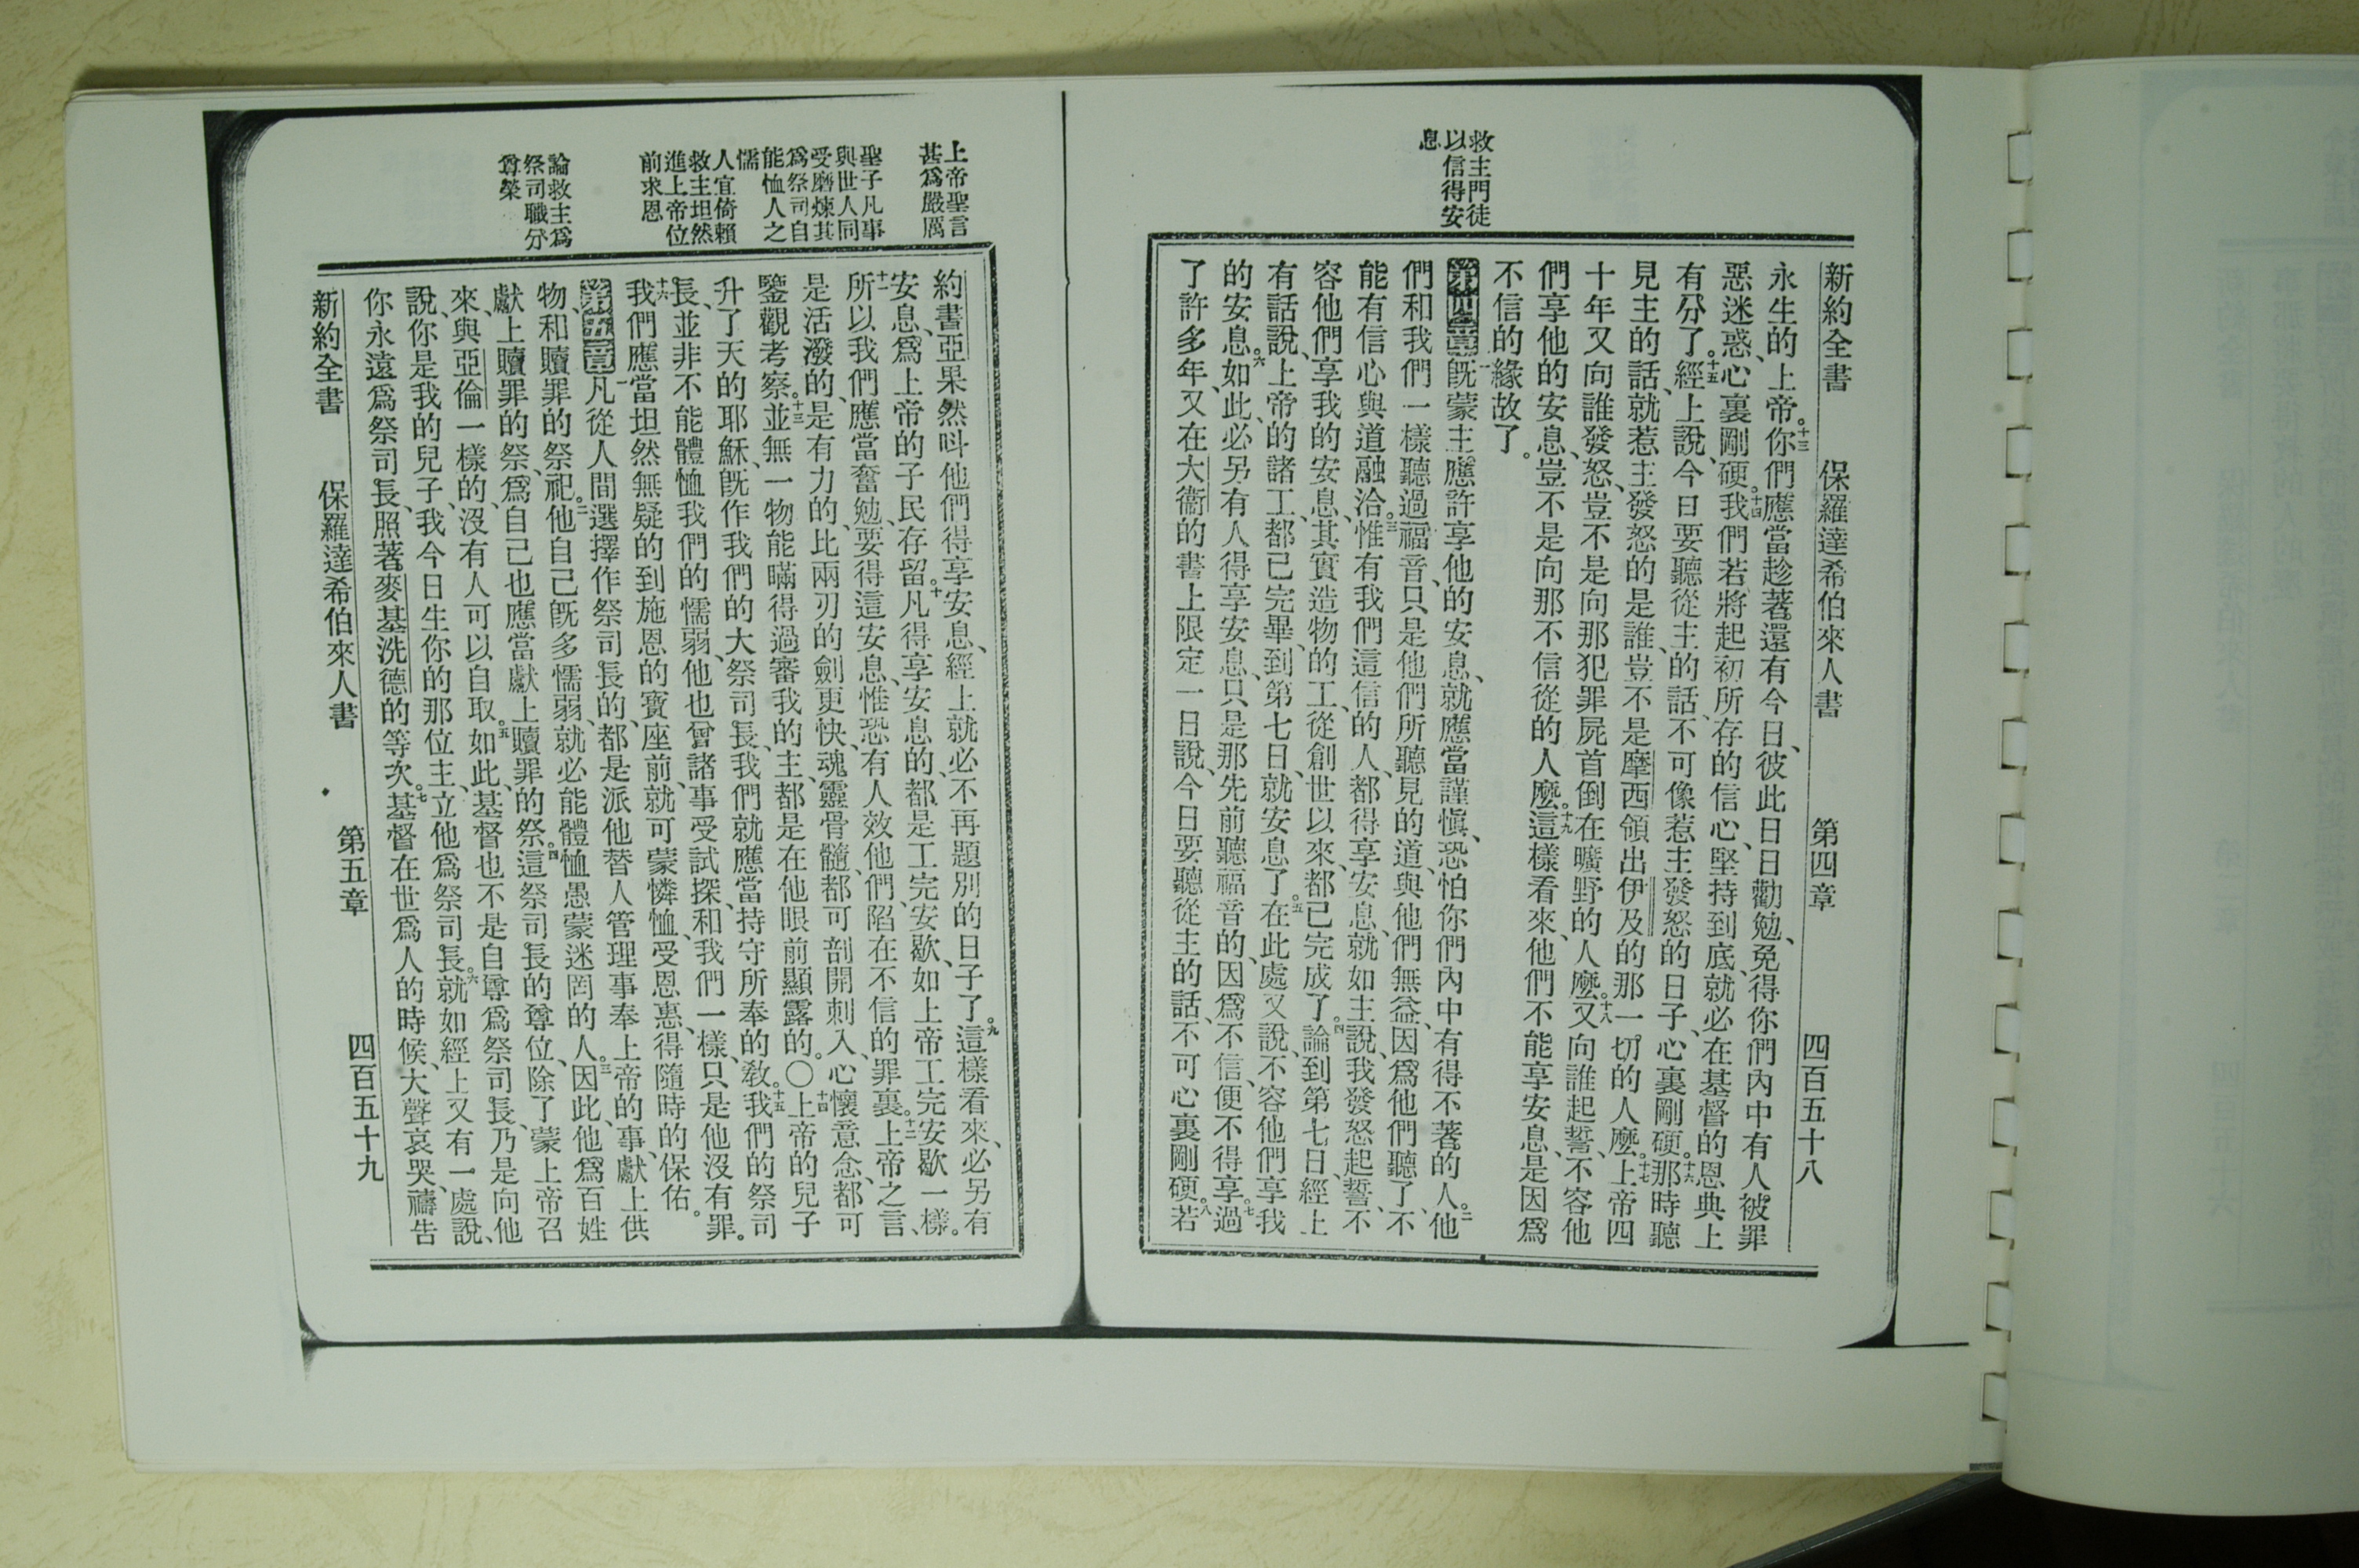 新約全書　保羅達希伯來人書　第四章　四百五十八
救主門徒
以信得安
息
永生的上帝。十三你們應當趁著還有今日、彼此日日勸勉、免得你們內中有人被罪
惡迷惑、心裏剛硬。十四我們若將起初所存的信心、堅持到底、就必在基督的恩典上
有分了。十五經上說、今日要聽從主的話、不可像惹主發怒的日子、心裏剛硬。十六那時聽
見主的話、就惹主發怒的是誰、豈不是摩西領出伊及的那一切的人麼。十七上帝四
十年又向誰發怒、豈不是向那犯罪屍首倒在曠野的人麼。十八又向誰起誓、不容他
們享他的安息、豈不是向那不信從的人麼。十九這樣看來、他們不能享安息、是因爲
不信的緣故了。
第四章一旣蒙主應許享他的安息、就應當謹愼、恐怕你們內中有得不著的人。二他
們和我們一樣聽過福音、只是他們所聽見的道、與他們無益、因爲他們聽了、不
能有信心與道融洽。三惟有我們這信的人、都得享安息、就如主說、我發怒起誓、不
容他們享我的安息、其實造物的工、從創世以來、都已完成了。四論到第七日、經上
有話說、上帝的諸工、都已完畢、到第七日、就安息了。五在此處又說、不容他們享我
的安息。六如此、必另有人得享安息、只是那先前聽福音的、因爲不信、便不得享。七過
了許多年、又在大衞的書上限定一日說、今日要聽從主的話、不可心裏剛硬。八若
上帝聖言
甚爲嚴厲
聖子凡事
與世人同
受磨煉其
爲祭司自
能恤人之
懦
人宜倚賴
救主坦然
進上帝位
前求恩
論救主爲
祭司職分
尊榮
約書亞果然呌他們得享安息、經上就必不再題別的日子了。九這樣看來、必另有
安息、爲上帝的子民存留。十凡得享安息的、都是工完安歇、如上帝工完安歇一樣。
十一所以我們應當奮勉、要得這安息、惟恐有人效他們、陷在不信的罪裏。十二上帝之言、
是活潑的、是有力的、比兩刃的劍更快、魂靈骨髓、都可剖開刺入、心懷意念、都可
鑒觀考察。十三並無一物能瞞得過審我的主、都是在他眼前顯露的。○十四上帝的兒子
升了天的耶穌、旣作我們的大祭司長、我們就應當持守所奉的敎。十五我們的祭司
長、並非不能體恤我們的懦弱、他也曾諸事受試探、和我們一樣、只是他沒有罪。
十六我們應當坦然無疑的到施恩的寶座前、就可蒙憐恤、受恩惠、得隨時的保佑。
第五章一凡從人間選擇作祭司長的、都是派他替人管理事奉上帝的事、獻上供
物、和贖罪的祭祀。二他自己旣多懦弱、就必能體恤愚蒙迷罔的人。三因此、他爲百姓
獻上贖罪的祭、爲自己也應當獻上贖罪的祭。四這祭司長的尊位、除了蒙上帝召
來、與亞倫一樣的、沒有人可以自取。五如此、基督也不是自尊爲祭司長、乃是向他
說、你是我的兒子、我今日生你的那位主、立他爲祭司長。六就如經上又有一處說、
你永遠爲祭司長、照著麥基洗德的等次。七基督在世爲人的時候、大聲哀哭、禱告
新約全書　保羅達希伯來人書　第五章　四百五十九